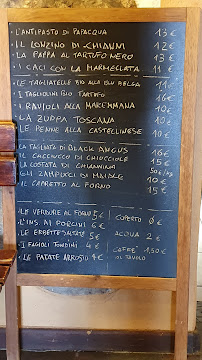 • L'ANTIPASTO DI PAPACQUA 13 €
• IL LONZINO DI 12 €
• LA PAPPA AL TARTUFO NERO 13 €
• I CACI CON LA MARMELLATA 11 €
• LE TAGLIATELLE BIO ALLA 11 €
• I TAGLIOLINI BIO TARTUFO 16 €
• I RAVIOLI ALLA MAREMMANA 10 €
• LA ZUPPA TOSCANA 10 €
• LE PENNE ALLA CASTELLINESE 10 €
• LA TAGLIATA DI BLACK ANGUS 16 €
• IL CACCIUCCO DI CHIOCCIOLE 15 €
• LA COSTATA DI CHIANINA
• GLI ZAMPUCCI DI MAIALE 10 €
• IL CAPRETTO AL FORNO 15 €
• LE VERDURE AL FORNO 5 € COPERTO 0 €
• L'INS. AI PORCINI 6 €
• LE ERBETTE SALTATE 5 € ACQUA 2 €
• I FAGIOLI TONDINI 4 €
• LE PATATE ARROSTO 4 € CAFFE' 1,50 €
AL TAVOLO